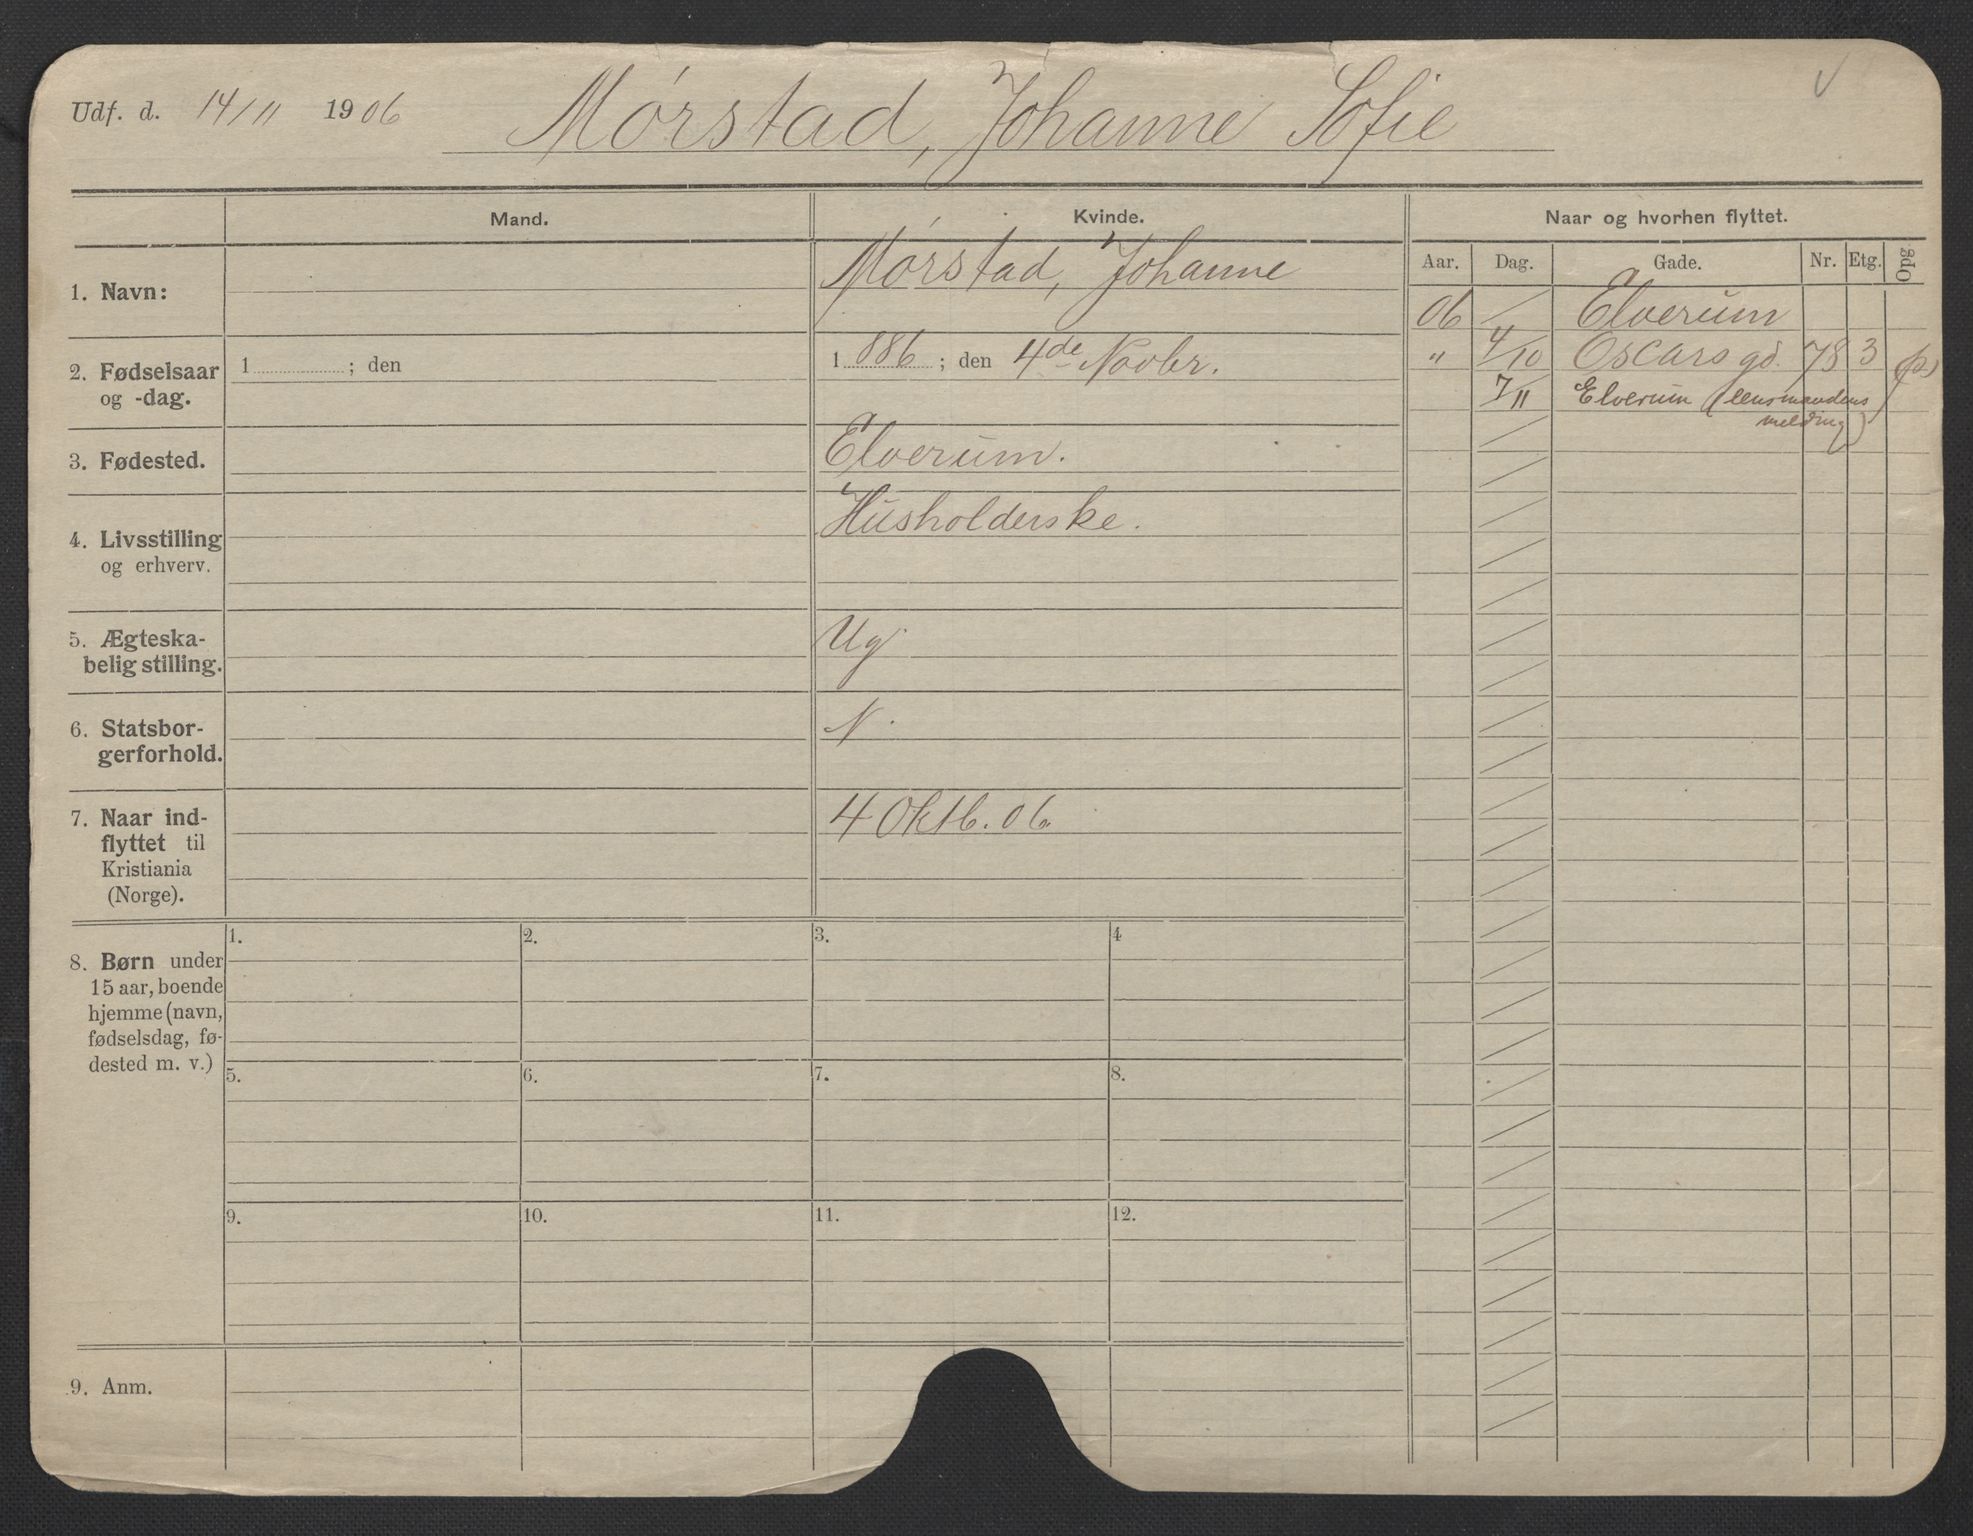 Udf. d. 14/11 1906 Mørstad, Johanne Sofie
Mand. Kvinde. Naar og hvorhen flyttet.
Aar. Dag. Gade. Nr. Etg. Opg.
1. Navn: Mørstad, Johanne
06 / Elverum
2. Fødselsaar 1 ; den 1 886 ; den 4de Novbr.
og -dag.
" 4/10 Oscarsgd. 78 3 (p)
7/11 Elverum (lensmandens
melding)
3. Fødested. Elverum.
4. Livsstilling Husholderske.
og erhverv.
5. Ægteska- Ug
belig stilling.
6. Statsbor- N.
gerforhold.
7. Naar ind- 4 Oktb. 06.
flyttet til
Kristiania
(Norge).
8. Børn under
15 aar, boende
hjemme (navn,
fødselsdag, fø-
dested m. v.)
1. 2. 3. 4
5. 6. 7. 8.
9. 10. 11. 12.
9. Anm.